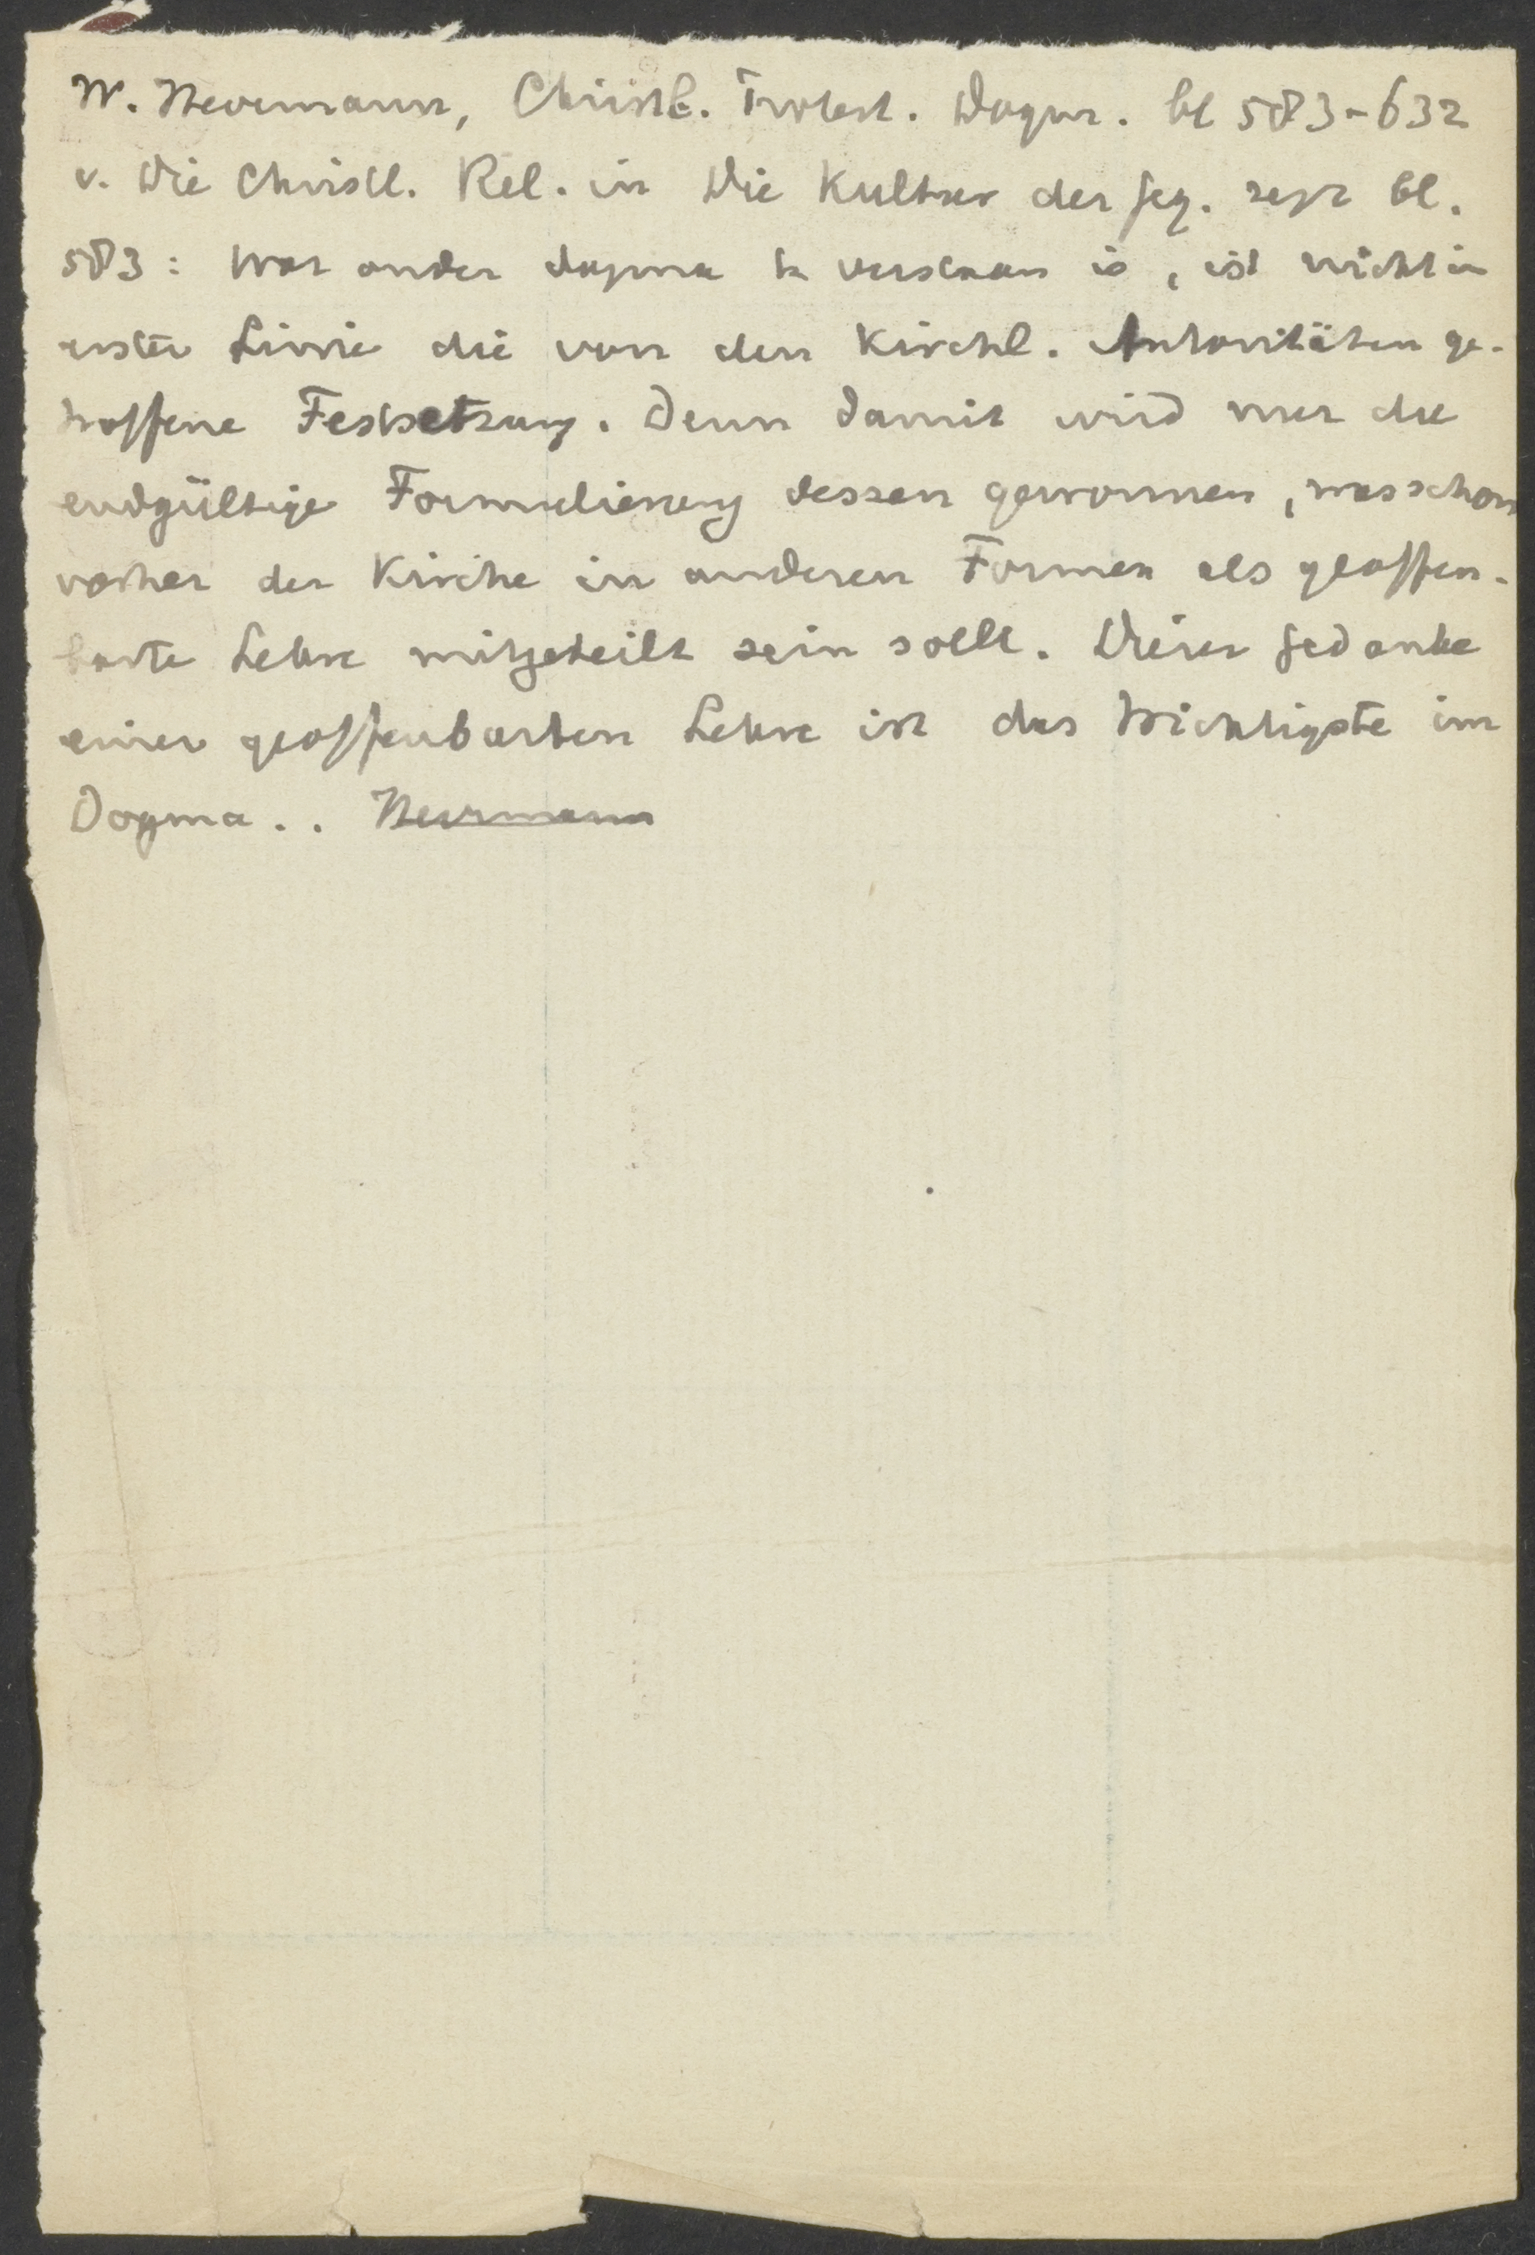 W. Herrmann, Christl. Protest. Dogm. bl 583-632
v. Die Christl. Rel. in Die Kultur der Geg. zegt bl.
583: Wat onder dogma te verstaan is, ist nicht in
erster Linie die von den Kirchl. Autoritäten ge-
troffene Festsetzung. Denn damit wird nur die
endgültige Formulierung dessen gewonnen, was schon
vorher der Kirche in anderen Formen als geoffen-
barte Lehre mitgeteilt sein sollt. Dieser Gedanke
einer geoffenbarten Lehre ist das Wichtigste im
Dogma.. Herrmann